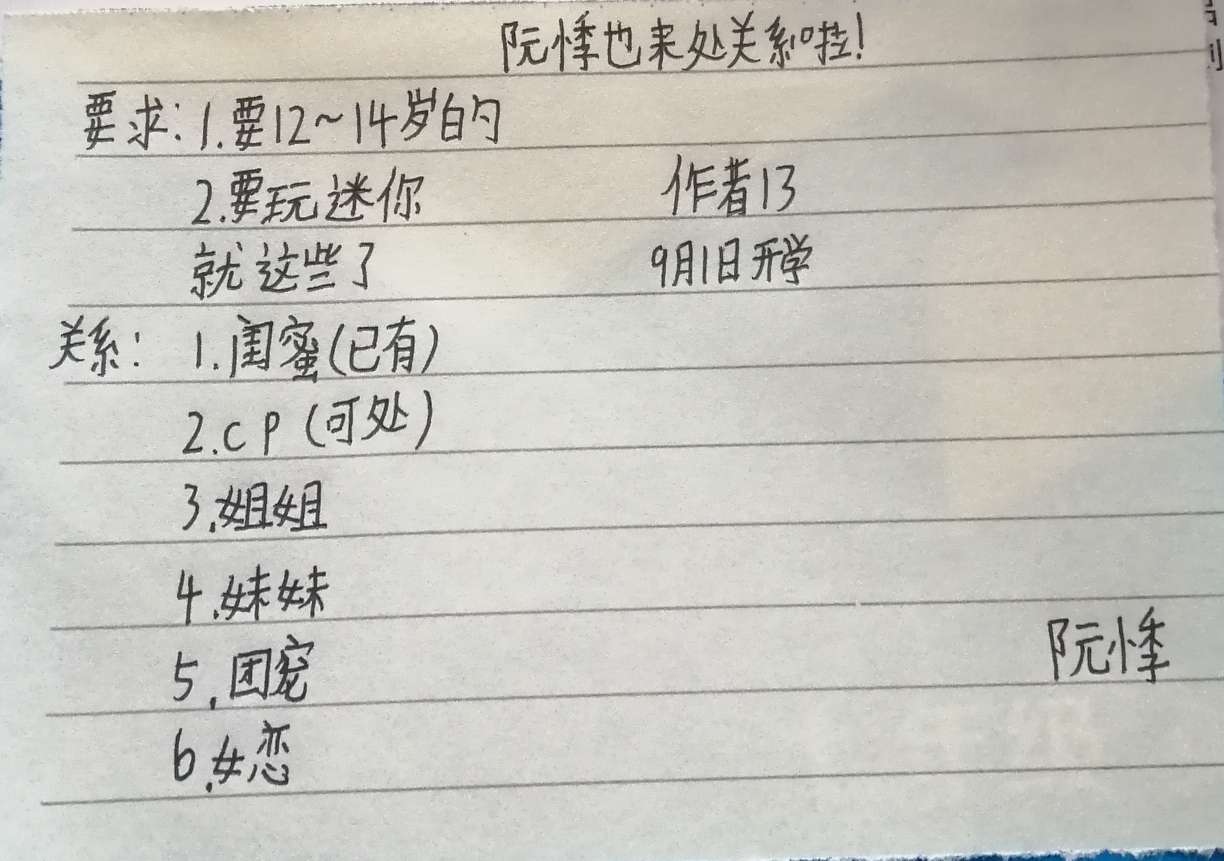 阮悸也来处关系啦!
要求:1.要12~14岁的
2.要玩迷你 作者13
就这些了 9月1日开学
关系: 1.闺蜜(已有)
2.cp(可处)
3.姐姐
4.妹妹
5.团宠
阮悸
6.女恋